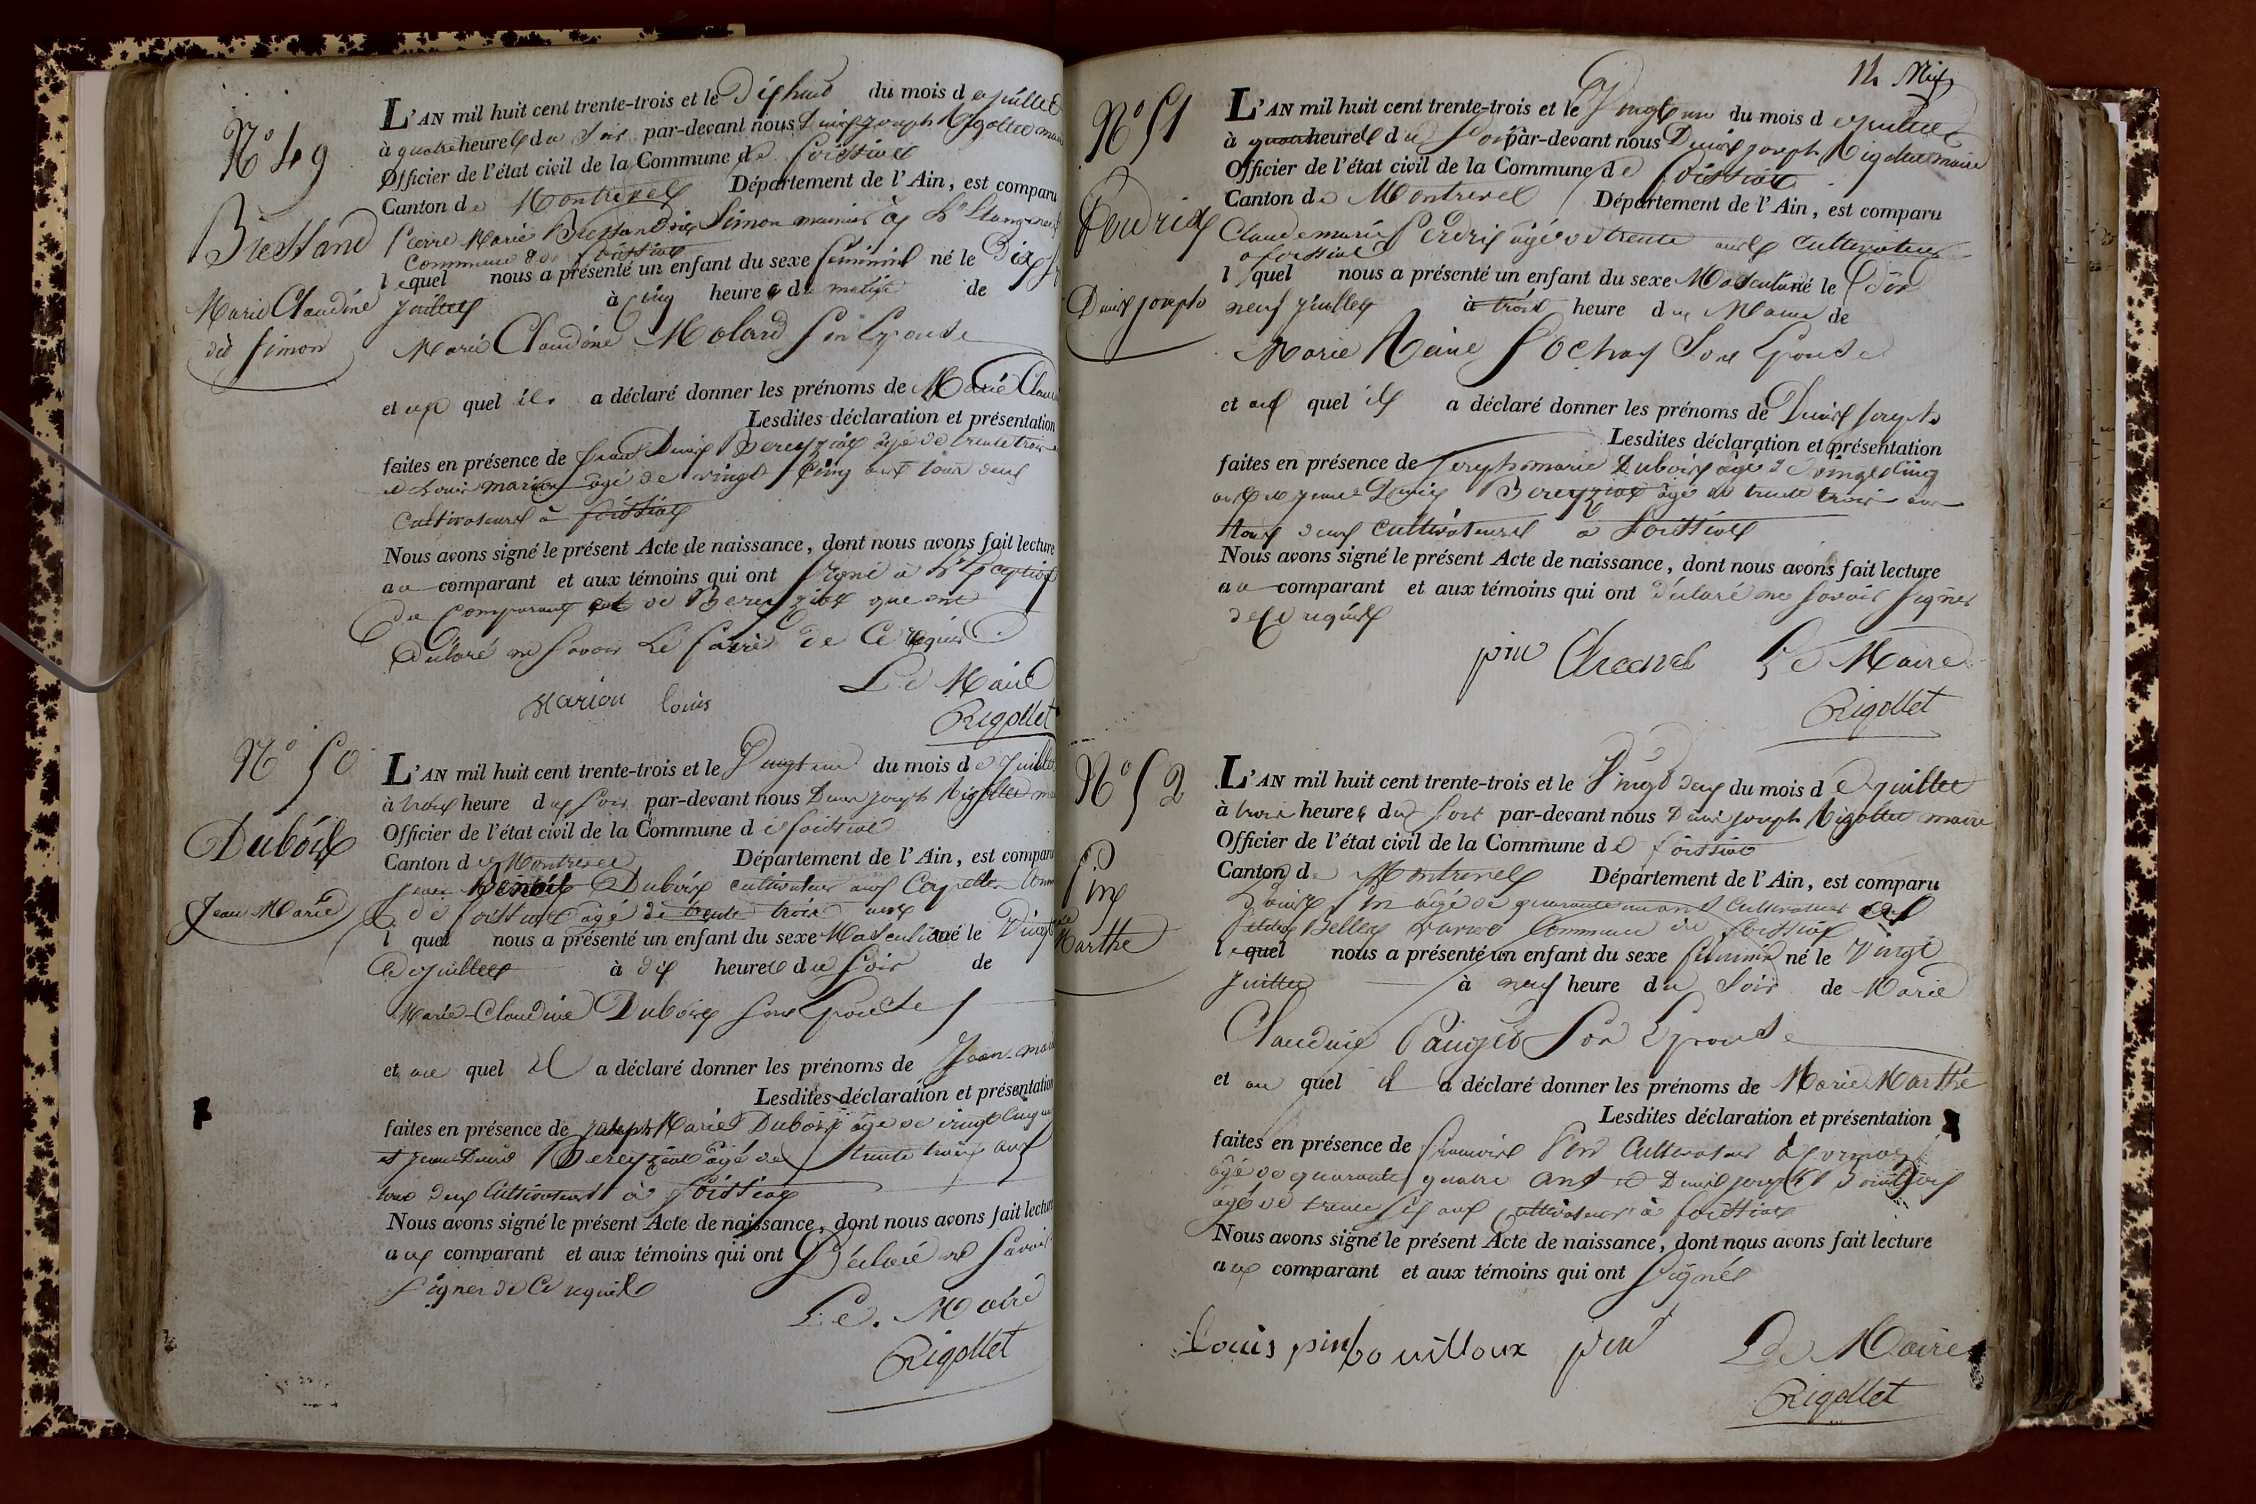 N° 49
Bressand
Marie Claudine
dit Simon
L'AN mil huit cent trente-trois et le Dix huit du mois de juillet
à quatre heures du soir par-devant nous Denis joseph Rigollet maire
Officier de l'état civil de la Commune de foissiat
Canton de Montrevel Département de l'Ain, est comparu
Pierre Marie Bressand dit Simon
Commune de foissiat
lequel nous a présenté un enfant du sexe féminin né le Dix
juillet à Cinq heures du matin de
Marie Claudine Molard Son Epouse
et auquel il a déclaré donner les prénoms de Marie
Lesdites déclaration et présentation
faites en présence de Denis Bereyziat âgé de trente trois
et Louis marion âgé de vingt Cinq ans tous deux
Cultivateurs à foissiat
Nous avons signé le présent Acte de naissance, dont nous avons fait lecture
au comparant et aux témoins qui ont signé à L'Exception
du Comparant et de Bereyziat que ont
Déclaré ne savoir Le faire de Ce requis
Le Maire
Marion louis
Rigollet
N° 50
Dubois
Jean Marie
L'AN mil huit cent trente-trois et le Vingt un du mois de juillet
à trois heure du soir par-devant nous Denis joseph Rigollet
Officier de l'état civil de la Commune de foissiat
Canton de Montrevel Département de l'Ain, est comparu
Benoit Dubois cultivateur aux
de foissiat âgé de trente trois ans
lquel nous a présenté un enfant du sexe Masculin né le Vingt
de juillet à dix heures du soir de
Marie-Claudine Dubois son Epouse
et au quel il a déclaré donner les prénoms de Jean-marie
Lesdites déclaration et présentation
faites en présence de joseph Marie Dubois âgé de vingt Cinq
et Denis Bereyziat âgé de trente trois ans
tous deux Cultivateurs à foissiat
Nous avons signé le présent Acte de naissance, dont nous avons fait lecture
aux comparant et aux témoins qui ont Déclaré ne savoir
signer de Ce requis
Le Maire
Rigollet
N° 51
Perdrix
Denis joseph
L'AN mil huit cent trente-trois et le Vingt un du mois de juillet
à quatre heures du Soir par-devant nous Denis joseph Rigollet maire
Officier de l'état civil de la Commune de foissiat
Canton de Montrevel Département de l'Ain, est comparu
Claude marie Perdrix âgé de trente ans cultivateur
a foissiat
lequel nous a présenté un enfant du sexe Masculin né le Dix
neuf juillet à trois heure du Matin de
Marie Reine Son Epouse
et auquel il a déclaré donner les prénoms de Denis joseph
Lesdites déclaration et présentation
faites en présence de joseph marie Dubois âgé de vingt Cinq
ans et Denis Bereyziat âgé de trente trois ans
tous deux Cultivateurs à foissiat
Nous avons signé le présent Acte de naissance, dont nous avons fait lecture
au comparant et aux témoins qui ont déclaré ne savoir signer
de Ce requis
Le Maire
Rigollet
N° 52
Pin
Marie Marthe
L'AN mil huit cent trente-trois et le Vingt deux du mois de juillet
à trois heures du soir par-devant nous Denis joseph Rigollet maire
Officier de l'état civil de la Commune de foissiat
Canton de Montrevel Département de l'Ain, est comparu
Louis Pin âgé de quarante un ans Cultivateur
Commune de foissiat
lequel nous a présenté un enfant du sexe féminin né le Vingt
juillet à neuf heure du Soir de Marie
Claudine Son Epouse
et au quel il a déclaré donner les prénoms de Marie Marthe
Lesdites déclaration et présentation
faites en présence de Pin Cultivateur
âgé de quarante quatre ans et Denis joseph Bouilloux
âgé de trente six ans Cultivateur à foissiat
Nous avons signé le présent Acte de naissance, dont nous avons fait lecture
aux comparant et aux témoins qui ont signé
louis pin bouilloux pin Le Maire
Rigollet